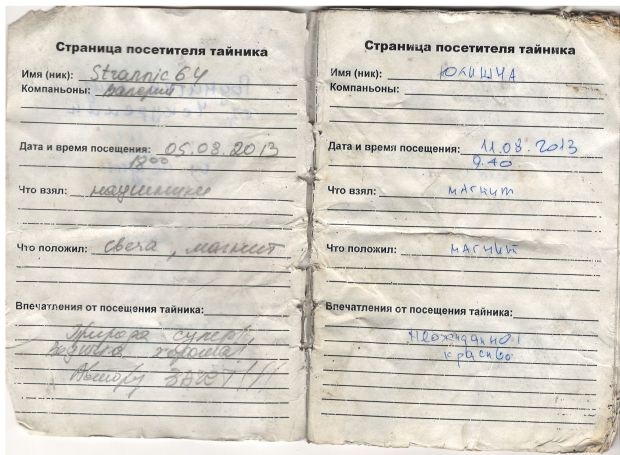 Страница посетителя тайника
Имя (ник): Strannic64
Компаньоны: Валерия
Дата и время посещения: 05.08.2013
18:00
Что взял: наушники
Что положил: свеча, магнит
Впечатления от посещения тайника:
Природа супер!
хороша
Автору ЗАЧЁТ!!!
Страница посетителя тайника
Имя (ник): ЮКИШЧА
Компаньоны:
Дата и время посещения: 11.08.2013
9.40
Что взял: магнит
Что положил: магнит
Впечатления от посещения тайника:
Неожиданно!
красиво